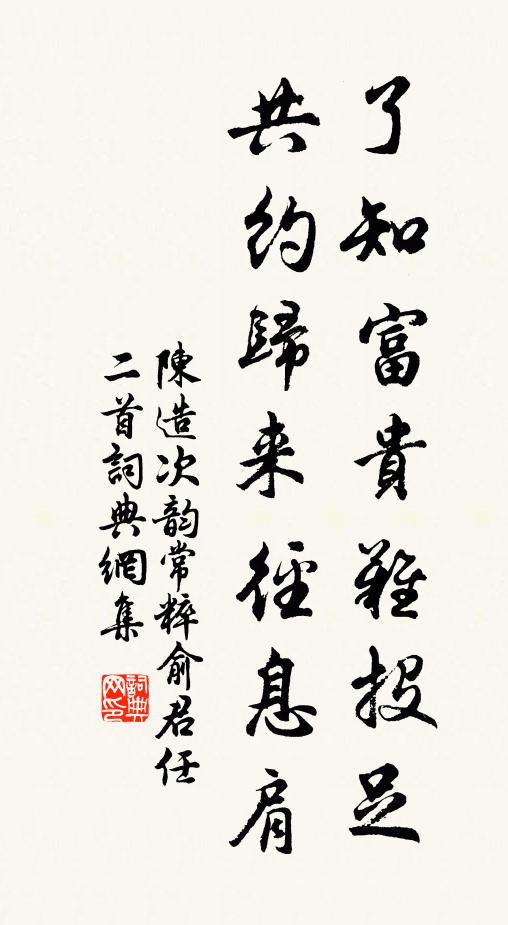 了知富貴難投足
共約歸来徑息肩
陳造次韵常粹俞君任
二首詞典網集
詞典网印